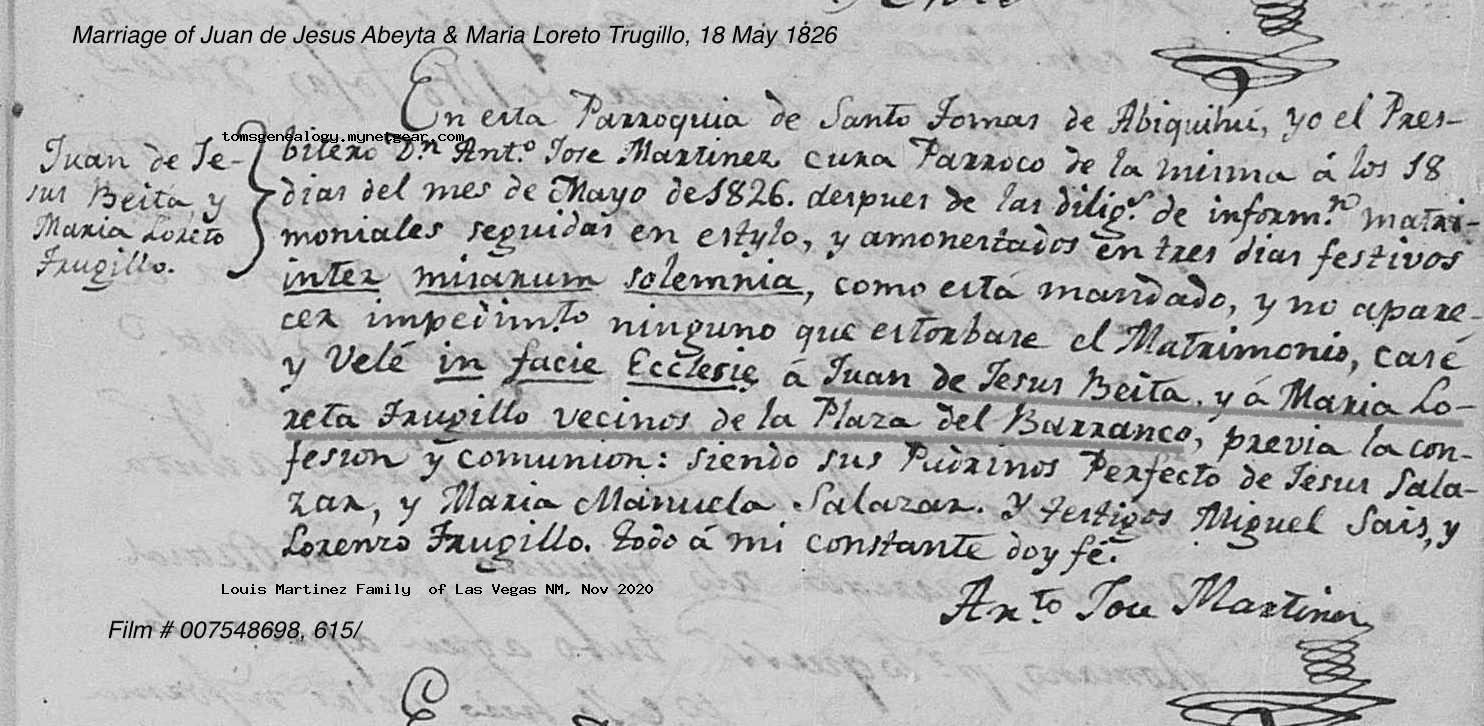 Marriage of Juan de Jesus Abeyta & Maria Loreto Trugillo, 18 May 1826
tomsgenealogy.mynetgear.com
Juan de Je-
sus Beita, y
Maria Loreto
Trugillo.
En esta Parroquia de Santo Tomas de Abiquihú, yo el Pres-
bitero Dⁿ Ant.º Jose Martinez cura Parroco de la misma á los 18
dias del mes de Mayo de 1826. despues de las dilig.ˢ de inform.ⁿ matri-
moniales seguidas en estylo, y amonestados en tres dias festivos
inter misarum solemnia, como está mandado, y no apare-
cer impedim.to ninguno que estorbase el Matrimonio, casé
y Velé in facie Ecclesie á Juan de Jesus Beita. y á Maria Lo-
reta Trugillo vecinos de la Plaza del Barranco, previa la con-
fesion y comunion: siendo sus Padrinos Perfecto de Jesus Sala-
zar, y Maria Manuela Salazar. Y testigos Miguel Sais, y
Lorenzo Trugillo. todo á mi constante doy fé.
An.to Jose Martinez
Louis Martinez Family of Las Vegas NM, Nov 2020
Film # 007548698, 615/